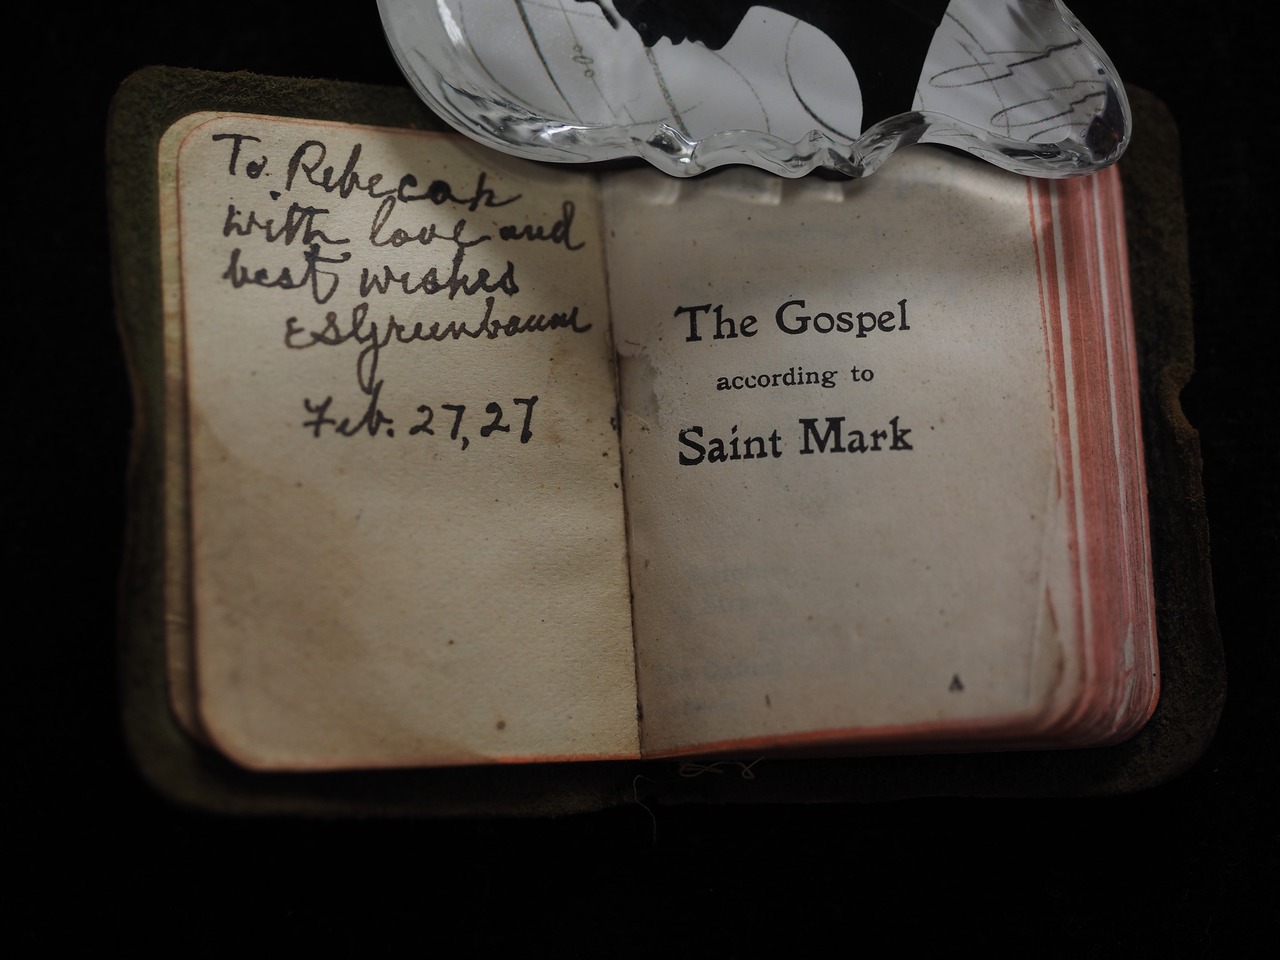 To. Rebecah
with love and
best wishes
ESGreenbaum
Feb. 27, 27
The Gospel
according to
Saint Mark
A